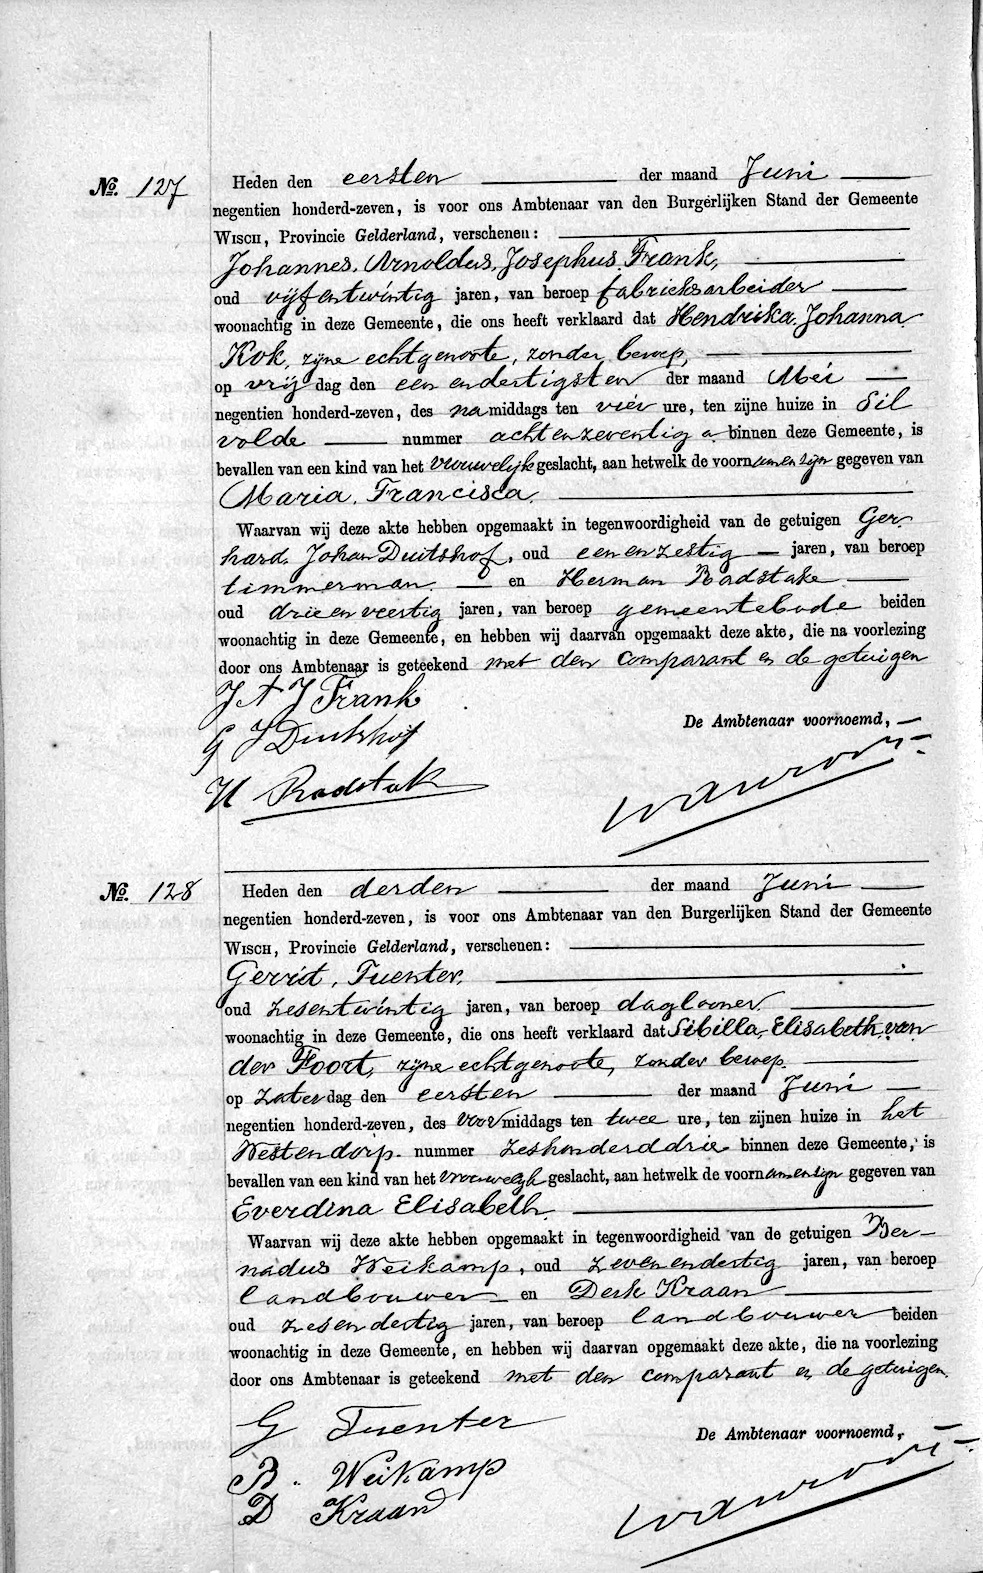 No. 127
Heden den eersten der maand Juni
negentien honderd-zeven, is voor ons Ambtenaar van den Burgerlijken Stand der Gemeente
WISCH, Provincie Gelderland, verschenen:
Johannes, Arnoldus, Josephus Frank,
oud vijfentwintig jaren, van beroep fabrieksarbeider
woonachtig in deze Gemeente, die ons heeft verklaard dat Hendrika Johanna
Kok, zijne echtgenoote, zonder beroep,
op vrijdag den een endertigsten der maand Mei
negentien honderd-zeven, des namiddags ten vier ure, ten zijne huize in Sil
volde nummer achtenzeventig a binnen deze Gemeente, is
bevallen van een kind van het vrouwelijk geslacht, aan hetwelk de voornamen zijn gegeven van
Maria, Francisca.
Waarvan wij deze akte hebben opgemaakt in tegenwoordigheid van de getuigen Ger-
hard Johan Duitshof, oud eenenzestig jaren, van beroep
timmerman en Herman Radstake
oud drieenveertig jaren, van beroep gemeentebode beiden
woonachtig in deze Gemeente, en hebben wij daarvan opgemaakt deze akte, die na voorlezing
door ons Ambtenaar is geteekend met den comparant en de getuigen
J A J Frank
De Ambtenaar voornoemd,
G J Duitshof
H Radstak
No. 128
Heden den derden der maand Juni
negentien honderd-zeven, is voor ons Ambtenaar van den Burgerlijken Stand der Gemeente
WISCH, Provincie Gelderland, verschenen:
Gerrit, Tuenter,
oud zesentwintig jaren, van beroep daglooner
woonachtig in deze Gemeente, die ons heeft verklaard dat Sibilla, Elisabeth van
der Foort, zijne echtgenoote, zonder beroep
op Zaterdag den eersten der maand Juni
negentien honderd-zeven, des voormiddags ten twee ure, ten zijnen huize in het
Westendorp nummer zeshonderddrie binnen deze Gemeente, is
bevallen van een kind van het vrouwelijk geslacht, aan hetwelk de voornamen zijn gegeven van
Everdina Elisabeth.
Waarvan wij deze akte hebben opgemaakt in tegenwoordigheid van de getuigen Ber-
nadus Weikamp, oud zevenendertig jaren, van beroep
landbouwer en Derk Kraan
oud zesendertig jaren, van beroep landbouwer beiden
woonachtig in deze Gemeente, en hebben wij daarvan opgemaakt deze akte, die na voorlezing
door ons Ambtenaar is geteekend met den comparant en de getuigen.
G Tuenter
De Ambtenaar voornoemd,
B. Weikamp
D Kraan